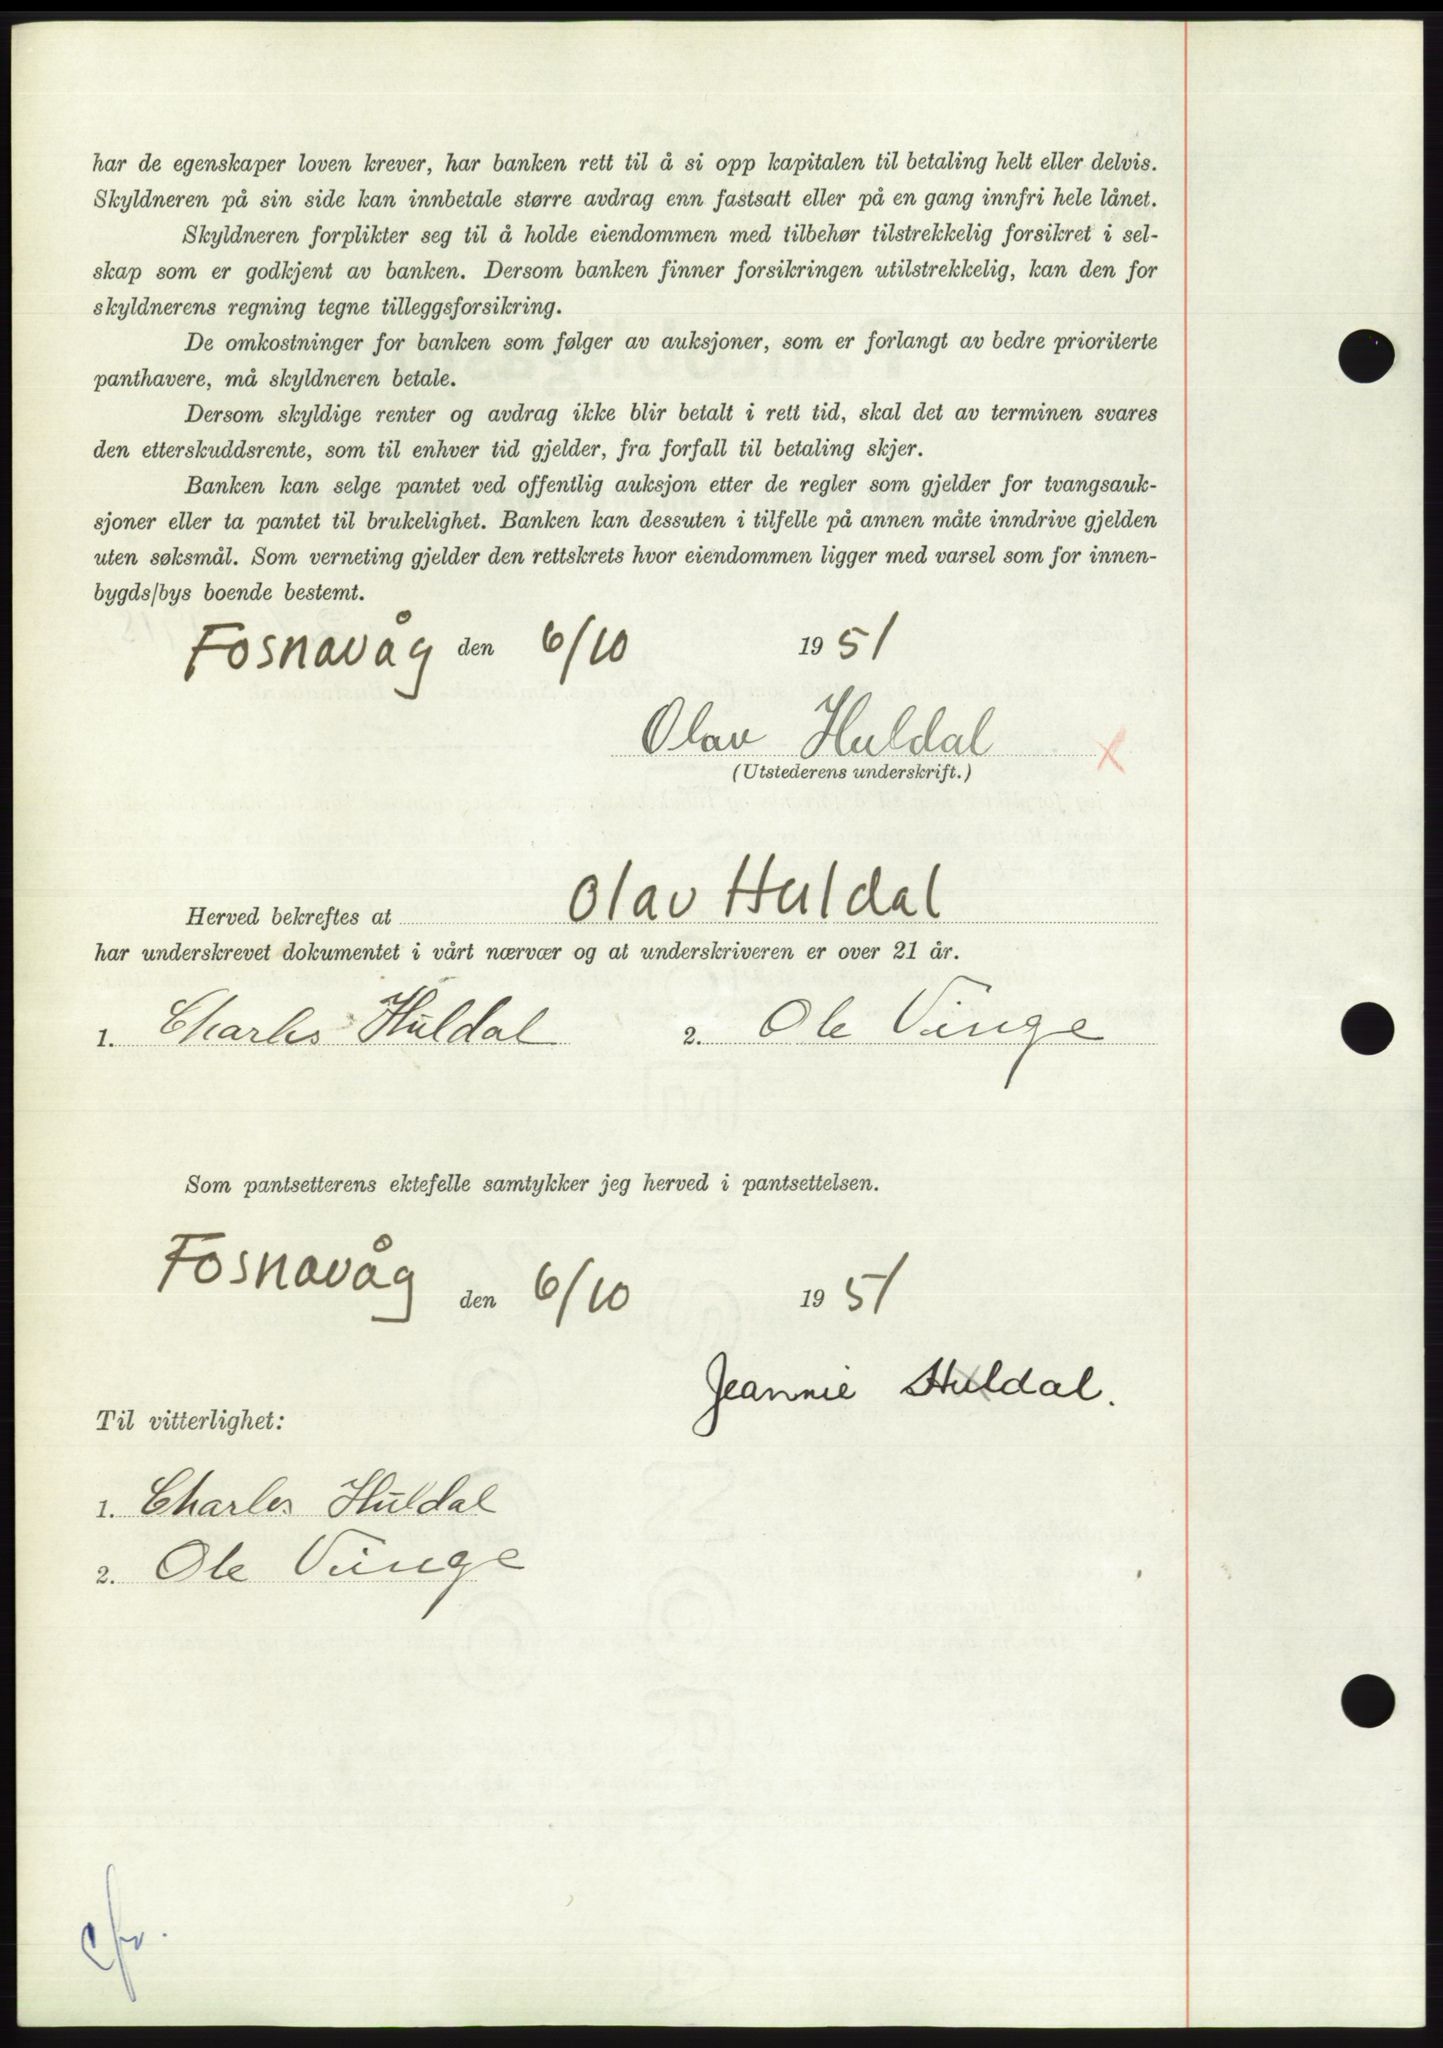 har de egenskaper loven krever, har banken rett til å si opp kapitalen til betaling helt eller delvis.
Skyldneren på sin side kan innbetale større avdrag enn fastsatt eller på en gang innfri hele lånet.
Skyldneren forplikter seg til å holde eiendommen med tilbehør tilstrekkelig forsikret i sel-
skap som er godkjent av banken. Dersom banken finner forsikringen utilstrekkelig, kan den for
skyldnerens regning tegne tilleggsforsikring.
De omkostninger for banken som følger av auksjoner, som er forlangt av bedre prioriterte
panthavere, må skyldneren betale.
Dersom skyldige renter og avdrag ikke blir betalt i rett tid, skal det av terminen svares
den etterskuddsrente, som til enhver tid gjelder, fra forfall til betaling skjer.
Banken kan selge pantet ved offentlig auksjon etter de regler som gjelder for tvangsauk-
sjoner eller ta pantet til brukelighet. Banken kan dessuten i tilfelle på annen måte inndrive gjelden
uten søksmål. Som verneting gjelder den rettskrets hvor eiendommen ligger med varsel som for innen-
bygds/bys boende bestemt.
Fosnavåg den 6/10 19 51
Olav Huldal
(Utstederens underskrift.)
Herved bekreftes at Olav Huldal
har underskrevet dokumentet i vårt nærvær og at underskriveren er over 21 år.
1. Charles Huldal 2. Ole Vinge
Som pantsetterens ektefelle samtykker jeg herved i pantsettelsen.
Fosnavåg den 6/10 19 51
Jeannie Huldal.
Til vitterlighet:
1. Charles Huldal
2. Ole Vinge